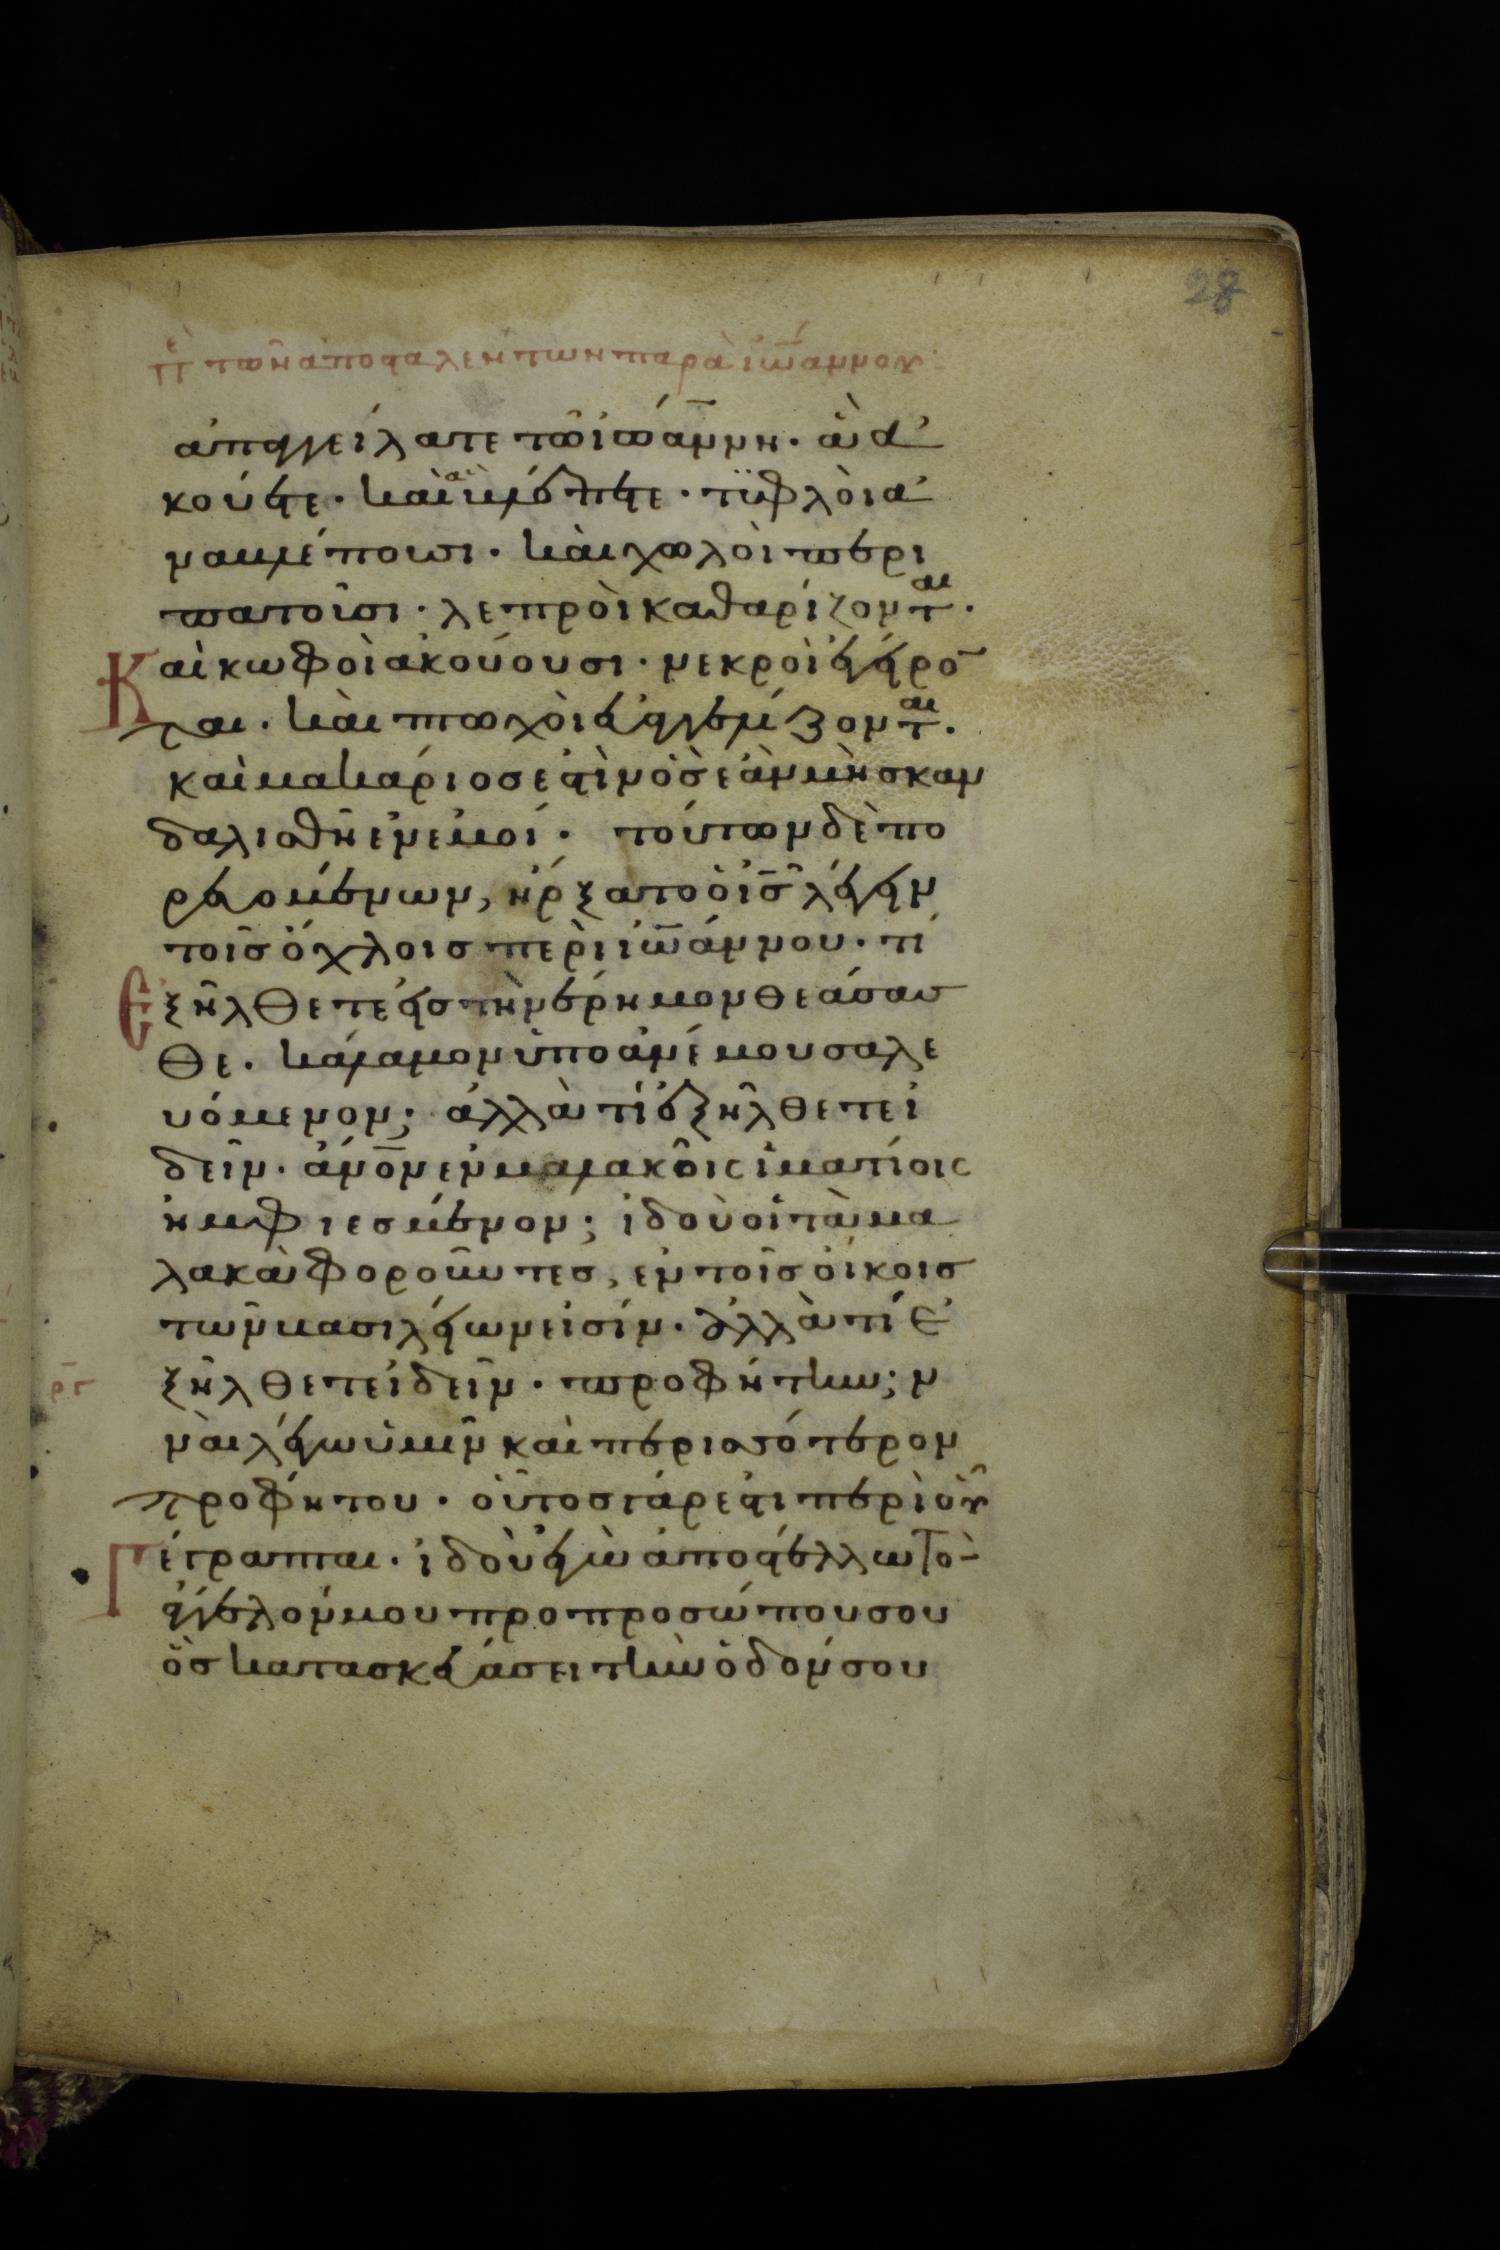 28
πε τῶν ἀποσταλεντων παρὰ ἰω̅αννου·
ἀπαγγείλατε τῶ ἰωά̅ννη. ἃ ἀ
κούετε. καὶ ἃ βλέπετε. τϋφλοὶ ἀ
ναβλέπουσι. καὶ χωλοὶ περι
πατοῦσι. λεπροὶ καθαρίζονται.
Καὶ κωφοὶ ἀκούουσι. νεκροὶ ἐγείρο̅
ται. καὶ πτωχοὶ εὐαγγελίζονται.
καὶ μακάριος ἐστὶν ὃς ἐὰν μὴ σκαν
δαλισθῆ ἐν ἐμοί. τούτων δὲ πο
ρευομένων, ἤρξατο ὁ ι̅σ̅ λέγειν
τοῖς ὄχλοις περὶ ἰω̅άννου. τί
Ἐξήλθετε εἰς τὴν ἔρημον θεάσασ
θε. κάλαμον ὑπο ἀνέμου σαλε
υόμενον; ἀλλὰ τί ἐξήλθετε ἰ
δεῖν. ἄν̅ο̅ν ἐν μαλακοῖς ἱματίοις
ἠμφιεσμένον; ἰδοὺ οἱ τὰ μα
λακὰ φοροῦντες, ἐν τοῖς οἴκοις
τῶν βασιλέων εἰσίν. ἀλλὰ τί ἐ
ξήλθετε ἰδεῖν. προφήτην; ν
ναὶ λέγω ὑμῖν καὶ περισσότερον
προφήτου. οὗτος γάρ ἐστι περὶ οὗ
Γέγραπται. ἰδοὺ ἐγὼ ἀποστέλλω τὸ̅
ἄγγελόν μου προ προσώπου σου
ὃς κατασκευάσει τὴν ὁδόν σου